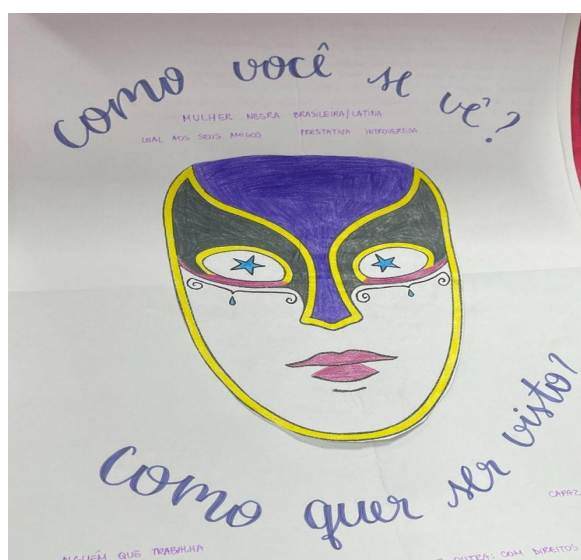 como você se vê?
MULHER NEGRA BRASILEIRA/LATINA
LEAL AOS SEUS AMIGOS PRESTATIVA INTROVERTIDA
como quer ser visto?
CAPAZ
ALGUÉM QUE TRABALHA
OUTRA: COM DIREITOS